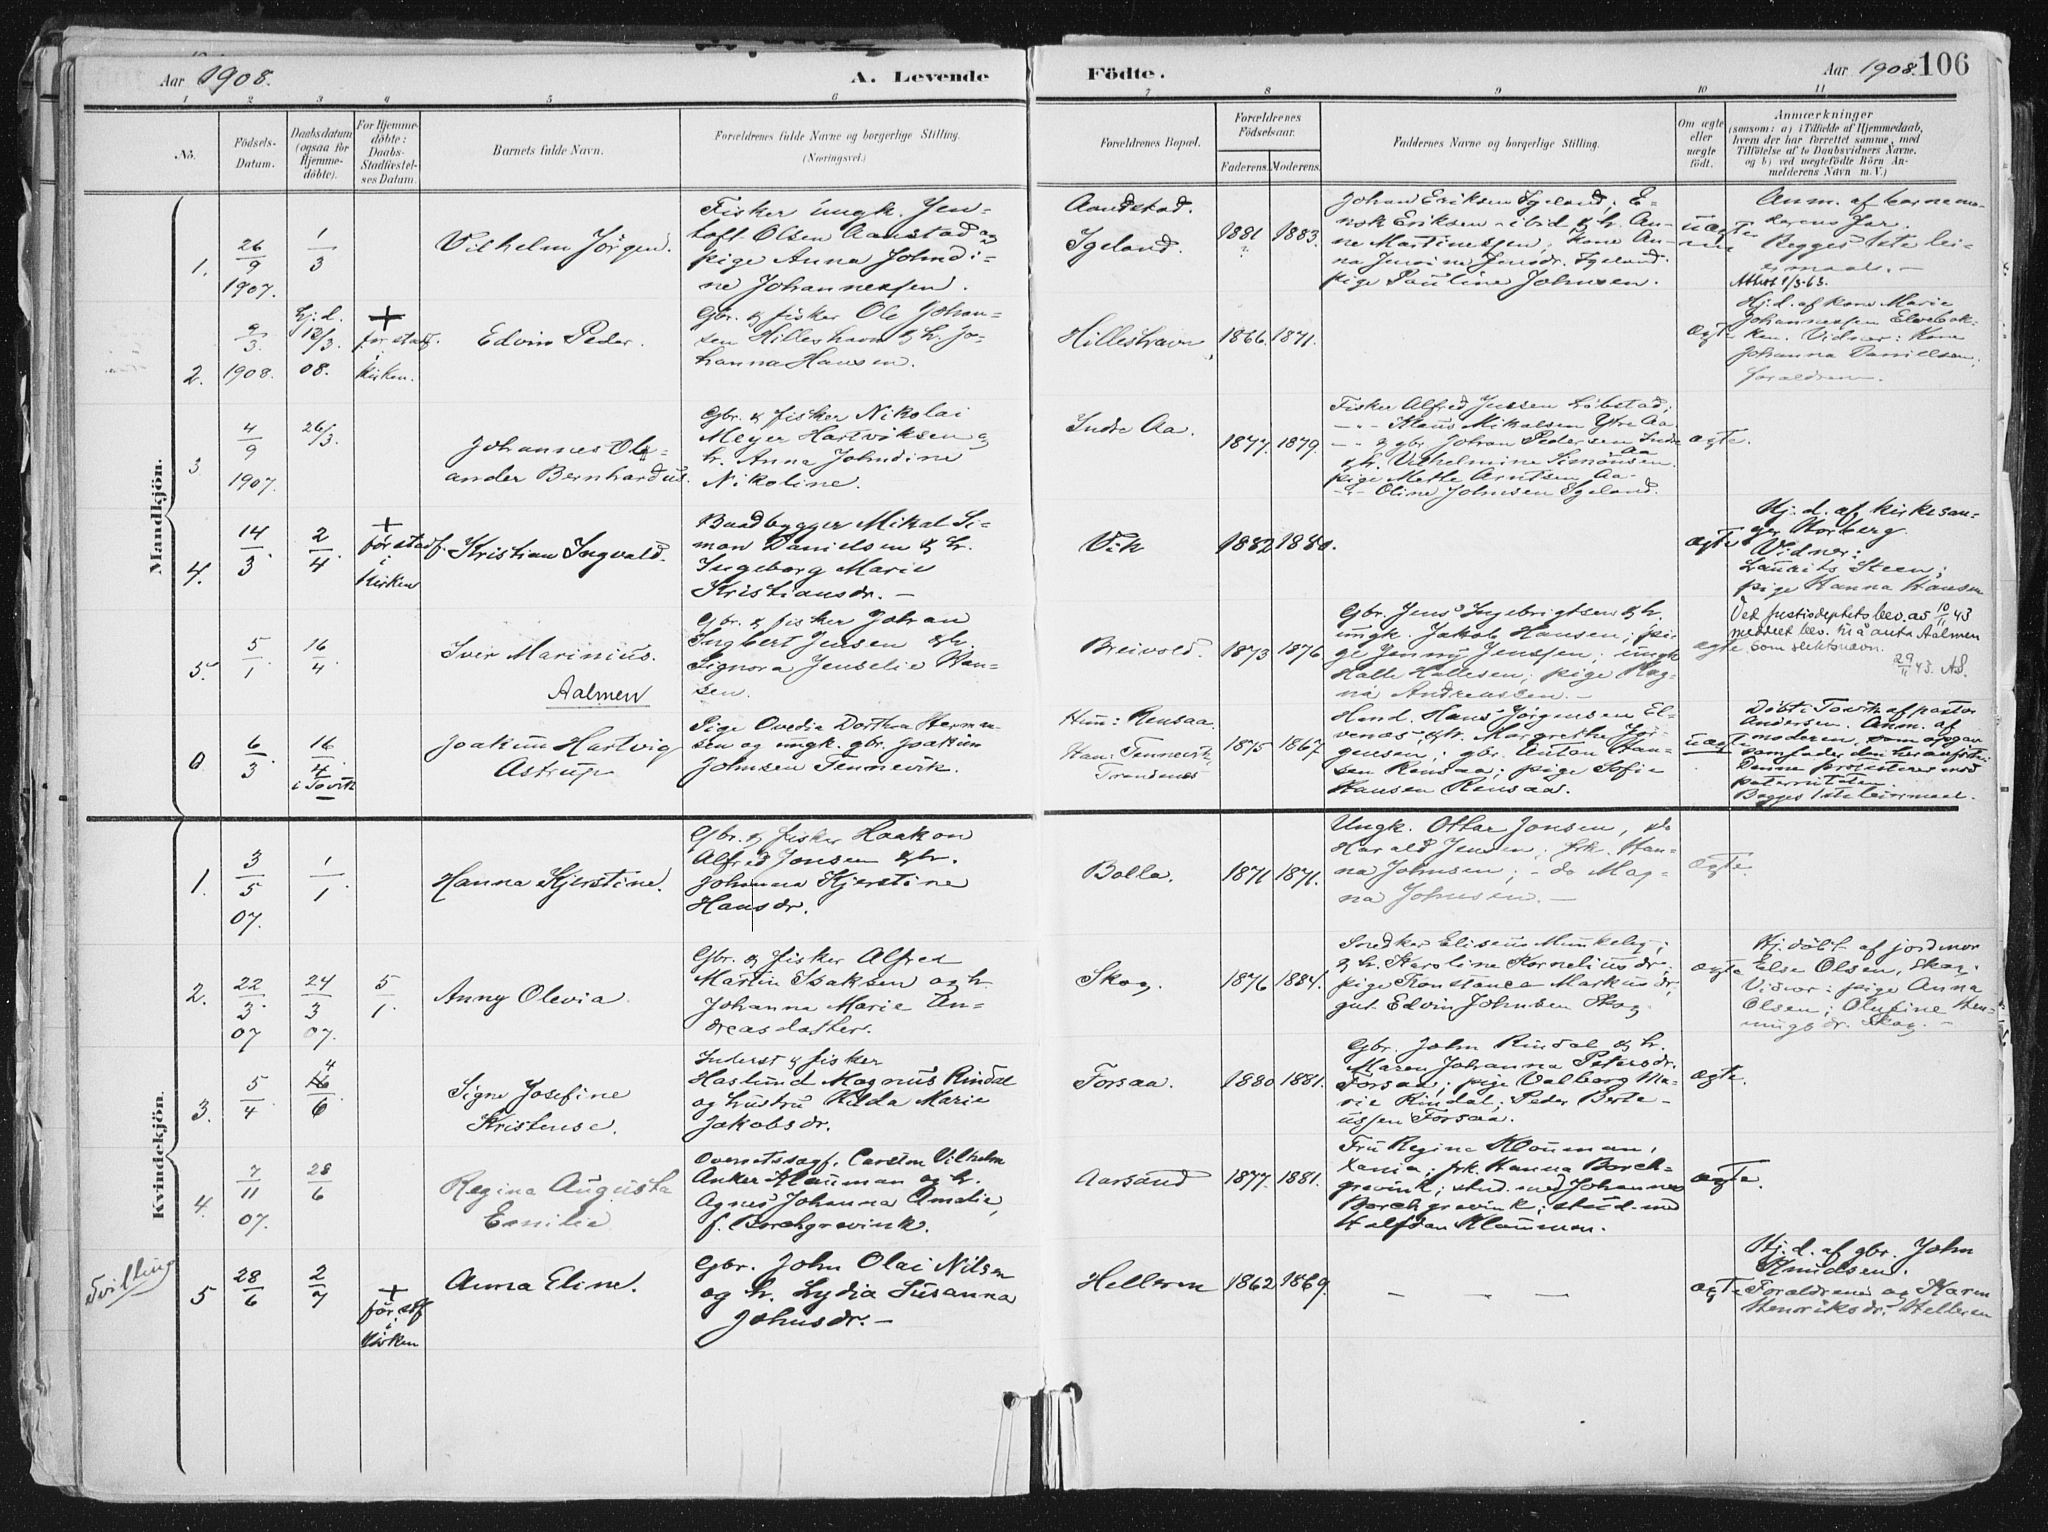 Aar 1908. A. Levende
Födte. Aar 1908. 106
1 2 3 4 5 6 7 8 9 10 11
No.
Födsels-
Datum.
Daabsdatum
(ogsaa for
Hjemme-
döbte).
For Hjemme-
döbte:
Daabs-
Stadfæstel-
ses Datum.
Barnets fulde Navn.
Forældrenes fulde Navne og borgerlige Stilling.
(Næringsvei.)
Forældrenes Bopæl.
Forældrenes
Födselsaar.
Faderens. Moderens.
Faddernes Navne og borgerlige Stilling.
Om ægte
eller
uægte
födt.
Anmærkninger
(saasom: a) i Tilfælde af Hjemmedaab,
hvem der har forrettet samme, med
Tilföielse af to Daabsvidners Navne.
og b) ved uegtefödte Börn An-
melderens Navn m. V.)
Mandkjön.
1.
26/9
1907.
1/3
Vilhelm Jörgen.
Fisker ungk. Jen-
toft Olsen Aanstad og
pige Anna Johndi-
ne Johannessen.
Aandstad.
Igeland.
1881 1883.
Johan Eriksen Igeland; E-
nok Eriksen - ibid & h. An-
ne Martinessen; kone An-
na Jensine Jensdr. Igeland.
pige Pauline Johnsen.
uægte
Anm. af barnemo-
derens far.
Begges 1ste lei-
ermaal. -
Attest 1/3-63.
2.
9/3
1908.
Hj.d.
12/3
08.
+
før stadf.
i
kirken.
Edvin Peder.
Gbr. & fisker Ole Johan-
sen Hilleshavn & h. Jo-
hanna Hansen.
Hilleshavn
1866. 1871.
ægte
Hj. d. af kone Marie
Johannessen Elvebak-
ken. Vidner: Kone
Johanna Danielsen,
forældrene.
3
4/9
1907.
26/3.
Johannes Ole-
ander Bernhardus.
Gbr. & fisker Nikolai
Meyer Hartviksen og
h. Anna Johndine
Nikoline.
Indre Aa.
1877. 1879.
Fisker Alfred Jessen Løbstad;
-"- Klaus Mikalsen Ytre Aa
-"- & gbr. Johan Pedersen Indre
Aa
& h. Vilhelmine Simonsen.
pige Mette Arntsen Aa.
-"- Oline Johnsen Igeland.
ægte.
4.
14/3
2/4
+
før stadf.
i
kirken
Kristian Ingvald.
Baadbygger Mikal Si-
mon Danielsen & h.
Ingeborg Marie
Kristiansdr. -
Vik
1882 1880.
ægte
Hj. d. af kirkesan-
ger Storberg.
Vidner:
Laurits Steen;
pige Hanna Hansen
5.
5/1
16/4.
Iver Marinius.
Aalmen
Gbr. & fisker Johan
Ingbert Jensen & h.
Signora Jenselie Han-
sen.
Breivold.
1873 1876
Gbr. Jens Ingebrigtsen & h.
ungk. Jakob Hansen; pi-
ge Jenny Jenssen; ungk
Halle Hallesen; pige Rag-
na Andreassen. -
ægte
Ved justisdeptets bev. av 10/11 43
meddelt bev. til å anta Aalmen
som slektsnavn.
29/11 43. AS.
6
6/3
16/4
i Tovik
Joakum Hartvig
Astrup
Pige Ovedia Dorthea Herman-
sen og ungk. gbr. Joakim
Johnsen Tennevik.
Hun: Rensaa.
Han: Tennevik,
Trondenes
1875 1867.
Hand. Hans Jörgensen El-
venes, & h. Margrethe Jör-
gensen; gbr. Anton Han-
sen Rensaa; pige Sofie
Hansen Rensaa.
uægte
Döbt i Tovik af pastor
Andersen. Anm. af
moderen, som opgav
som fader den heranførte.
Denne protesterer mod
paterniteten.
Begges 1ste leiermaal.
Kvindekjön.
1.
3/5
07.
1/1.
Hanna Kjerstine.
Gbr. & fisker Haakon
Alfred Jonsen & h.
Johanna Kjerstine
Hansdr.
Bolla.
1871 1871.
Ungk. Ottar Jonsen, do
Harald Jensen; frk. Han-
na Johnsen; - do Mag-
na Johnsen. -
ægte.
2.
22/3
07
24/3
07.
5/1
Anny Olevia.
Gbr. & fisker Alfred
Martin Isaksen og h.
Johanna Marie An-
dreasdatter.
Skog.
1876 1884.
Snedker Eliseus Munkeby;
& h. Karoline Korneliusdr.;
pige Konstance Markusdr;
gut Edvin Johnsen Skog.
ægte
Hj. döbt af jordmor
Else Olsen, Skog.
Vidner: pige Anna
Olsen; Olufine Hen-
ningsdr. Skog. -
3.
5/4
4
6
Signe Josefine
Kristense.
Inderst & fisker
Haslund Magnus Rindal
og hustru Hilda Marie
Jakobsdr.
Forsaa.
1880 1881.
Gbr. John Rindal & h.
Maren Johanna Petersdr.
Forsaa; pige Valborg Ma-
rie Rindal; Peder Berte-
ussen Forsaa.
ægte.
4.
7/11
07.
28/6
Regina Augusta
Emilie.
Overretssagf. Carsten Vilhelm
Anker Klouman og h.
Agnes Johanna Amalie,
f. Borchgrevink.
Aarsand
1877. 1881.
Fru Regine Klouman,
Xania; frk. Hanna Borch-
grevink; stud. med Johannes
Borchgrevink; stud. med
Halfdan Klouman.
ægte.
Tvilling
5
28/6
2/7
+
før stf
i
kirken
Anna Eline.
Gbr. John Olai Nilsen
og h. Lydia Susanna
Johnsdr. -
Helleren
1862 1869.
- - -
ægte
Hj. d. af gbr. John
Knudsen.
Forældrene og Karen
Henriksdr. Helleren